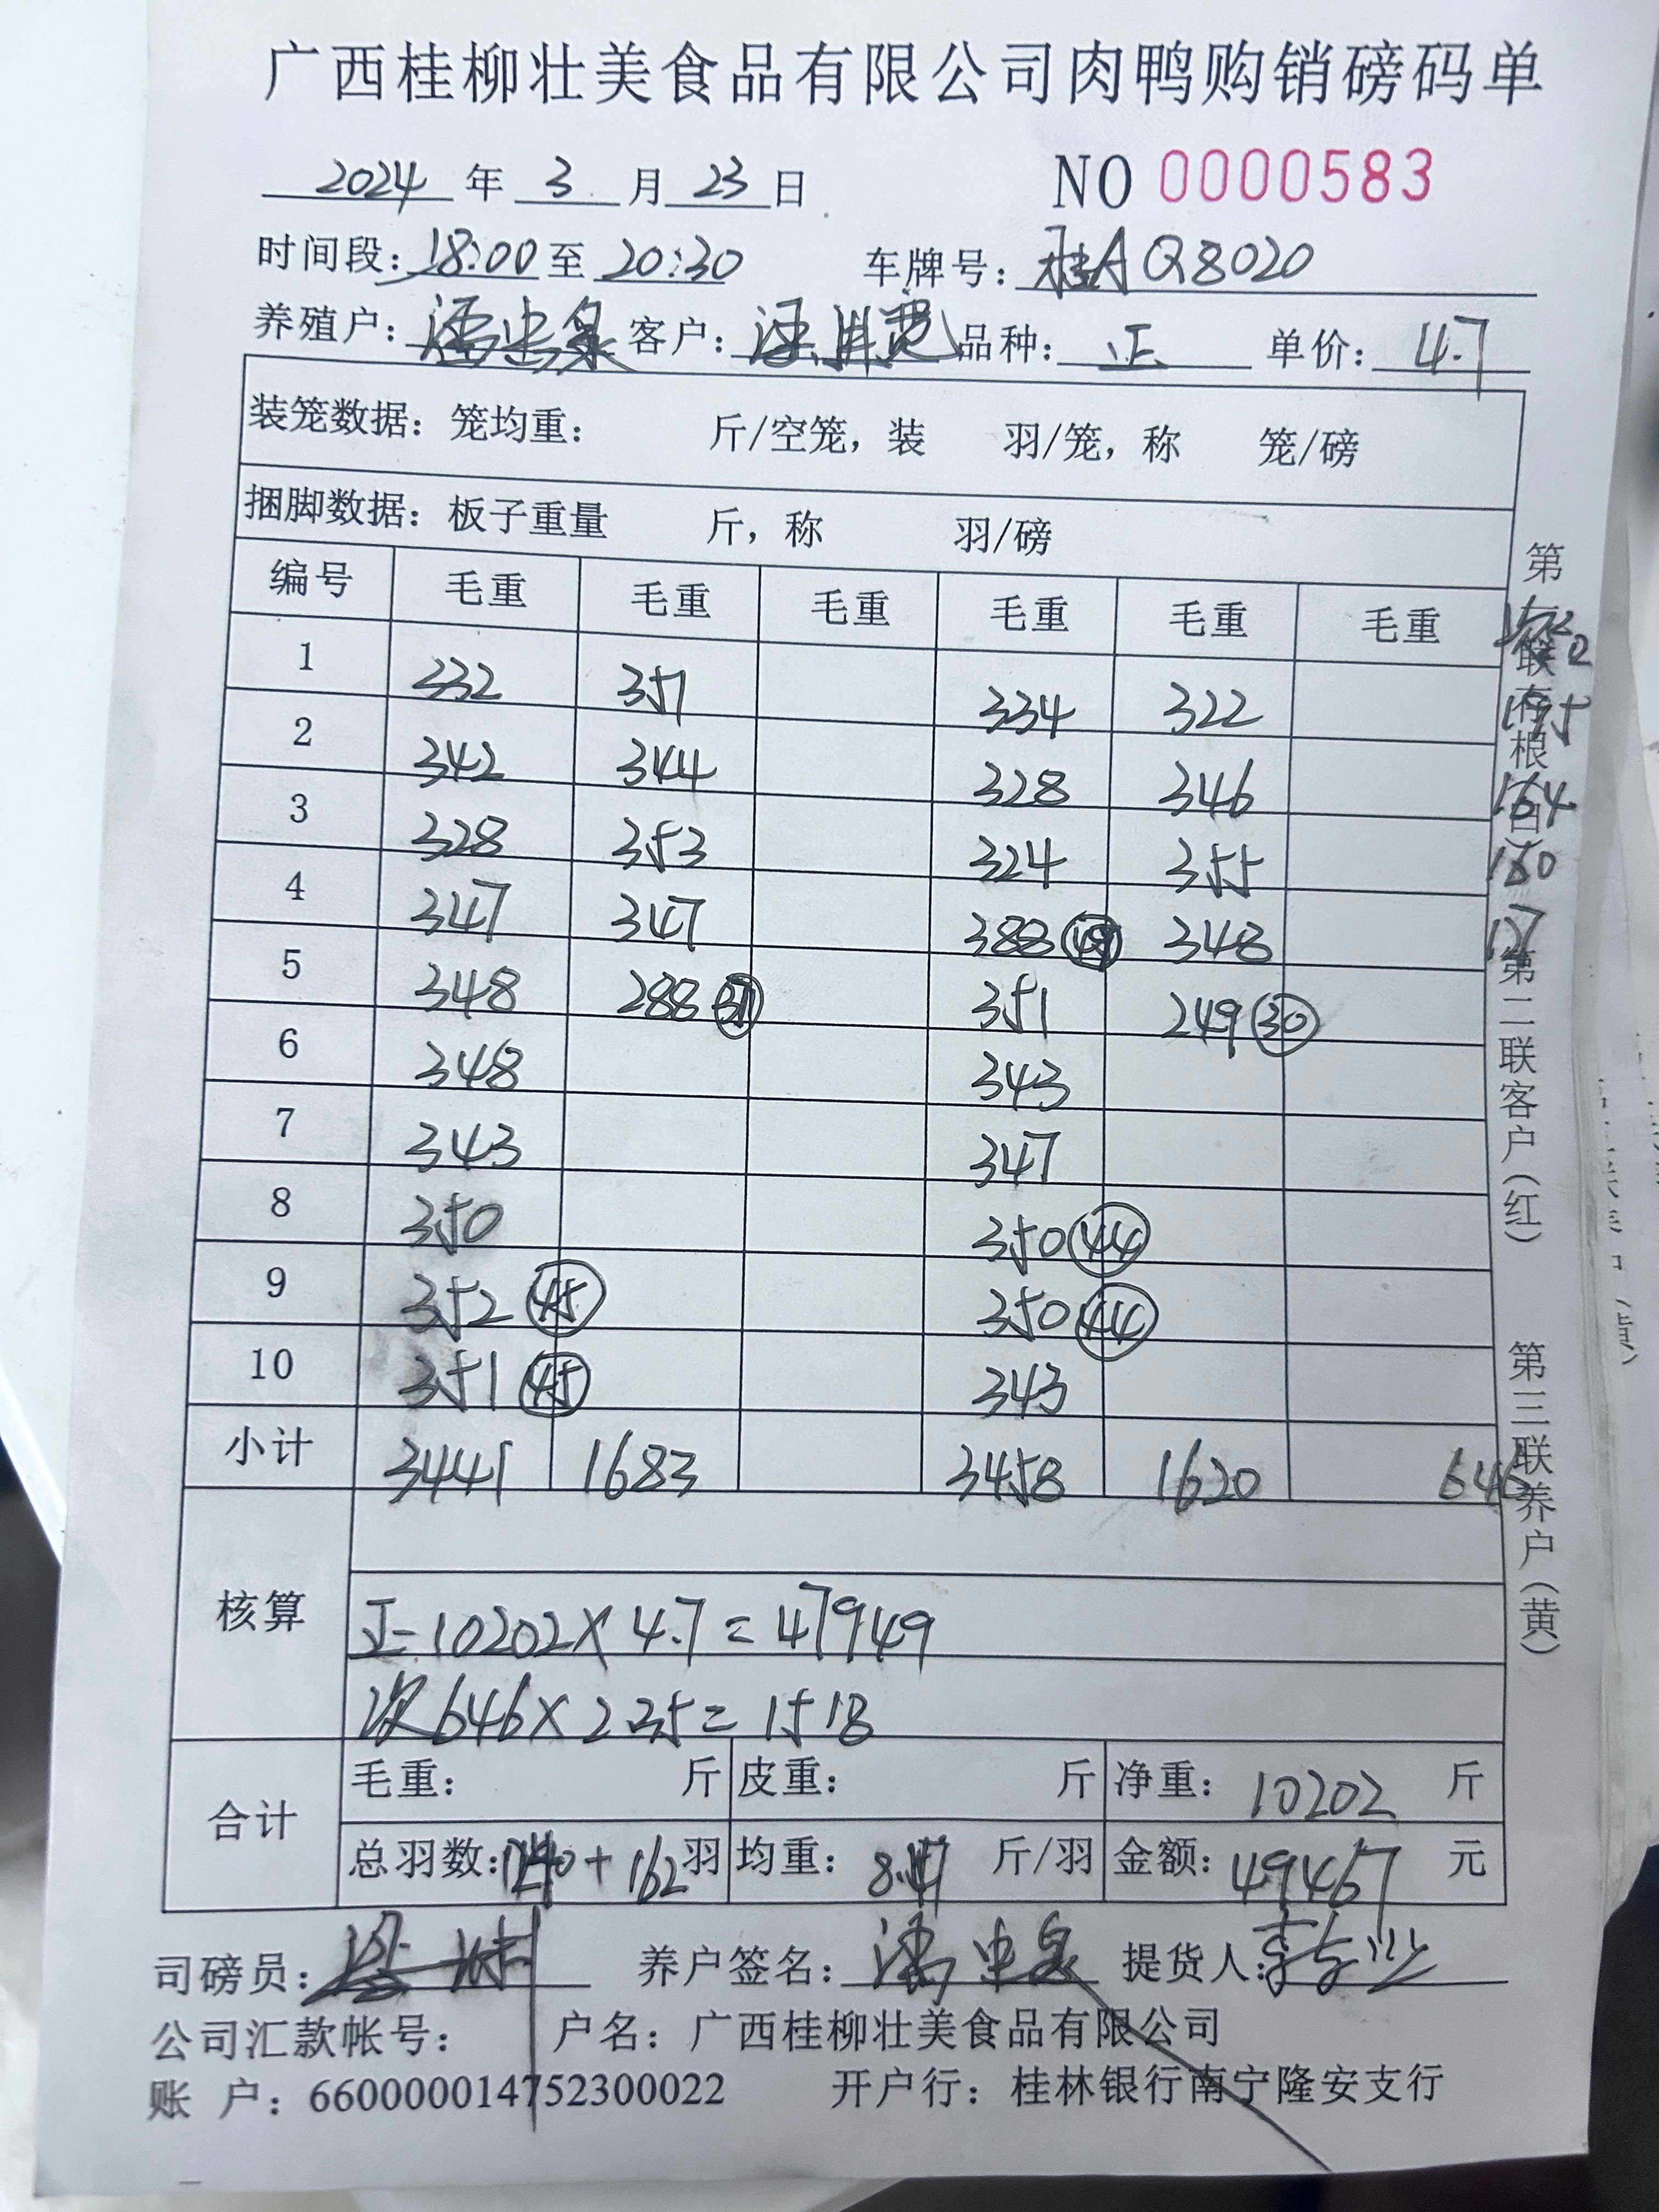 广西桂柳壮美食品有限公司肉鸭购销磅码单
2024 年 3 月 23 日 NO 0000583
时间段：18:00 至 20:30 车牌号：桂A Q8020
养殖户： 客户： 品种：正 单价：4.7
装笼数据：笼均重： 斤/空笼，装 羽/笼，称 笼/磅
捆脚数据：板子重量 斤，称 羽/磅
编号 毛重 毛重 毛重 毛重 毛重 毛重
1 332 357 334 322
2 342 344 328 346 195
3 328 353 324 355 164
4 347 347 388 348 180
5 348 288 351 249 30 127
6 348 343
7 343 347
8 350 350 44
9 352 45 350 44
10 351 45 343
小计 3441 1683 3458 1620 646
核算
正 10202 X 4.7 = 47949
次 646 X 2.35 = 1518
合计 毛重： 斤 皮重： 斤 净重：10202 斤
总羽数： + 162 羽 均重： 斤/羽 金额：49467 元
司磅员： 养户签名： 提货人：
公司汇款帐号： 户名：广西桂柳壮美食品有限公司
账 户：660000014752300022 开户行：桂林银行南宁隆安支行
第一联存根（白）
第二联客户（红）
第三联养户（黄）